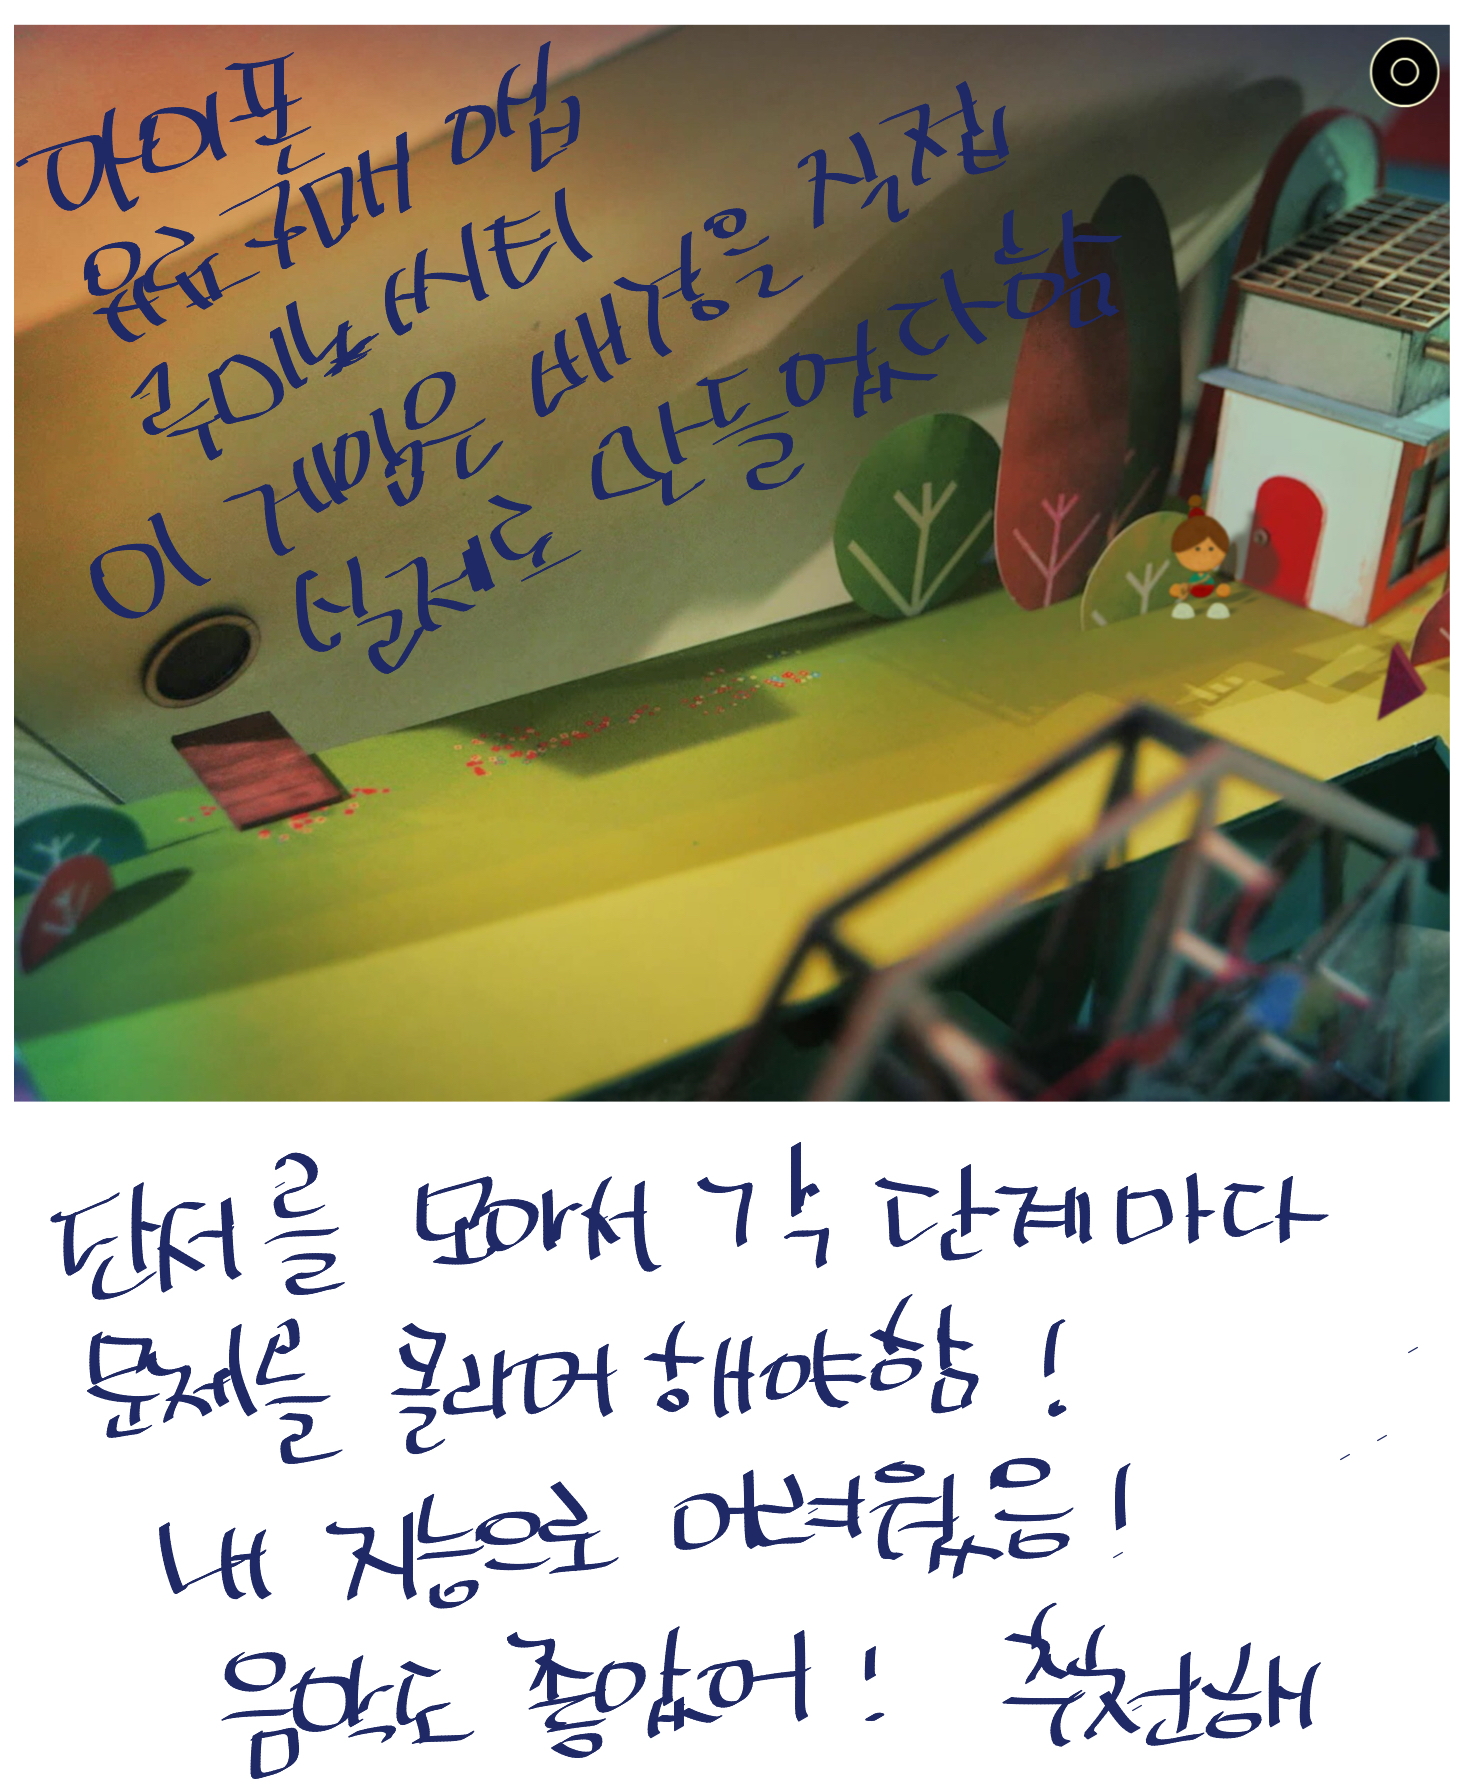 아이폰
유료 구매 앱
루미노 씨티
이 게임은 배경을 직접
실제로 만들었다함
단서를 모아서 각 단계마다
문제를 몰라며 해야함!
내 지능으로 어려웠음!
음악도 좋았어! 추천해